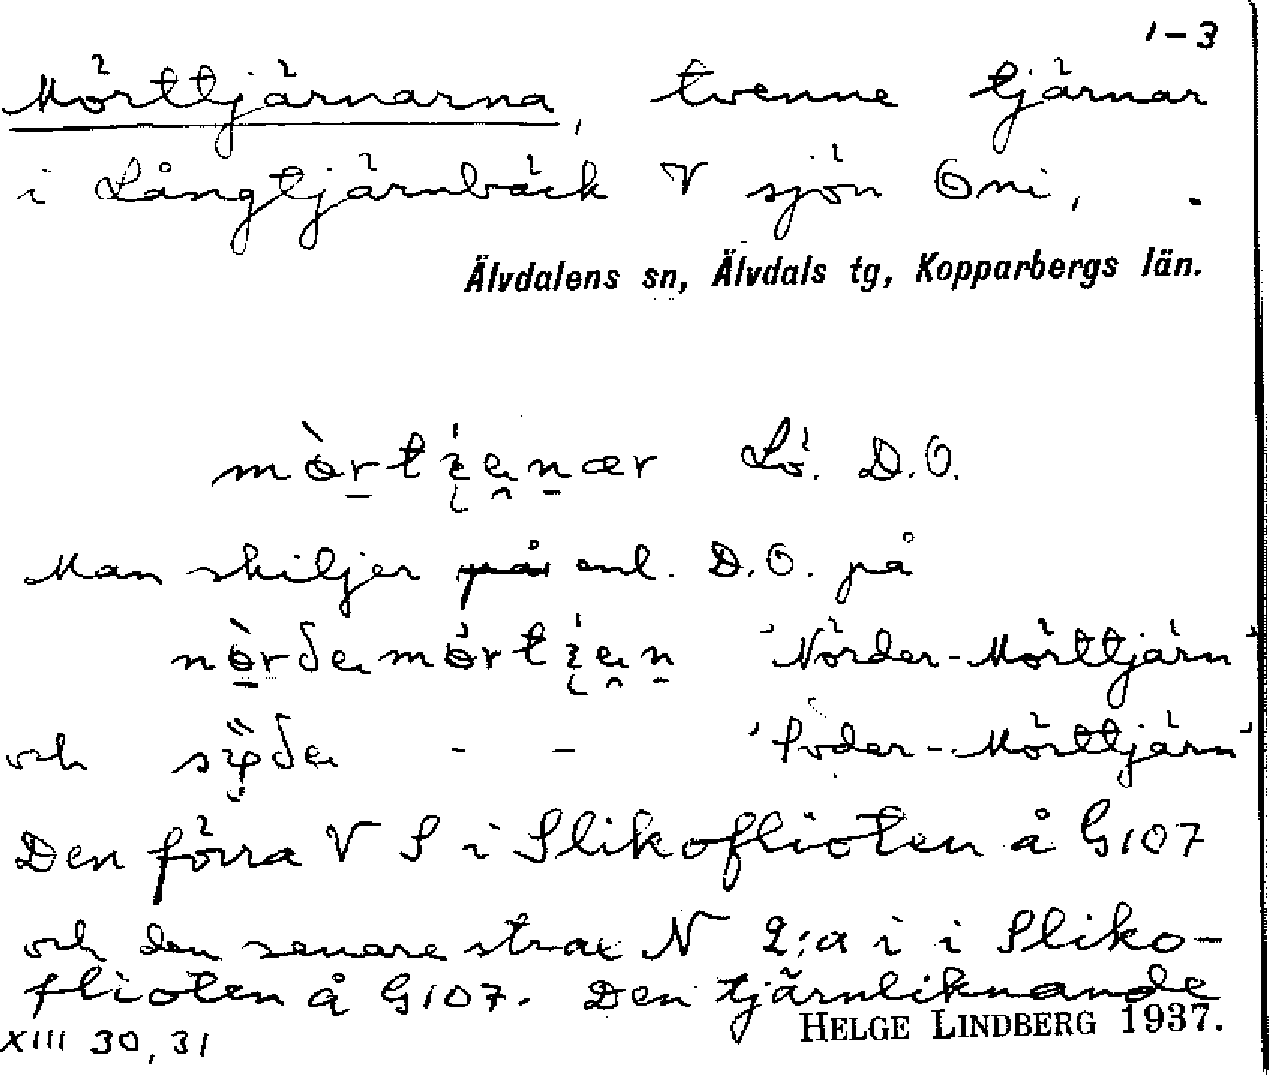 1-3
Mörttjärnarna, tvenne tjärnar
i Långtjärnbäck V sjön Oni,
Älvdalens sn, Älvdals tg, Kopparbergs län.
Lö. D.O.
Man skiljer på enl. D.O. på
'Nörder-Mörttjärn'
och - - 'Söder-Mörttjärn'
Den förra V S i Slikoflioten å G107
och den senare strax N 2:a i i Sliko-
flioten å G107. Den tjärnliknande
XIII 30, 31 HELGE LINDBERG 1937.